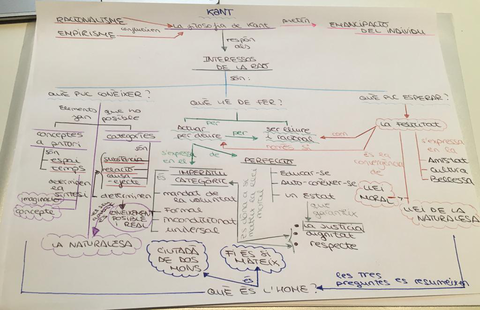 KANT
RACIONALISME
EMPIRISME
La filosofia de Kant
EMANCIPACIÓ
DEL INDIVIDU
respon
als
INTERESSOS
DE LA RAÓ
són:
QUÈ PUC CONÈIXER?
QUÈ HE DE FER?
QUÈ PUC ESPERAR?
Elements
són
que no
possible
conceptes
a priori
són
espai
temps
determinen
categories
són
substància
determinen
CONEIXEMENT
POSSIBLE I
REAL
LA NATURALESA
Actuar
per deure
per
ser lliure
i racional
IMPERATIU
CATEGÒRIC
mandat de
la voluntat
Formal
incondicionat
universal
PERFECTE
Educar-se
Auto-conèixer-se
un Estat
que
garanteix
La justícia
dignitat
respecte
LA FELICITAT
amb
s'expressa
en la
Amistat
Cultura
Bellesa
LLEI
MORAL
LLEI DE LA
NATURALESA
CIUTADÀ
DE DOS
MONS
FI ES SI
MATEIX
QUÈ ÉS L'HOME?
les tres
preguntes es resumeixen